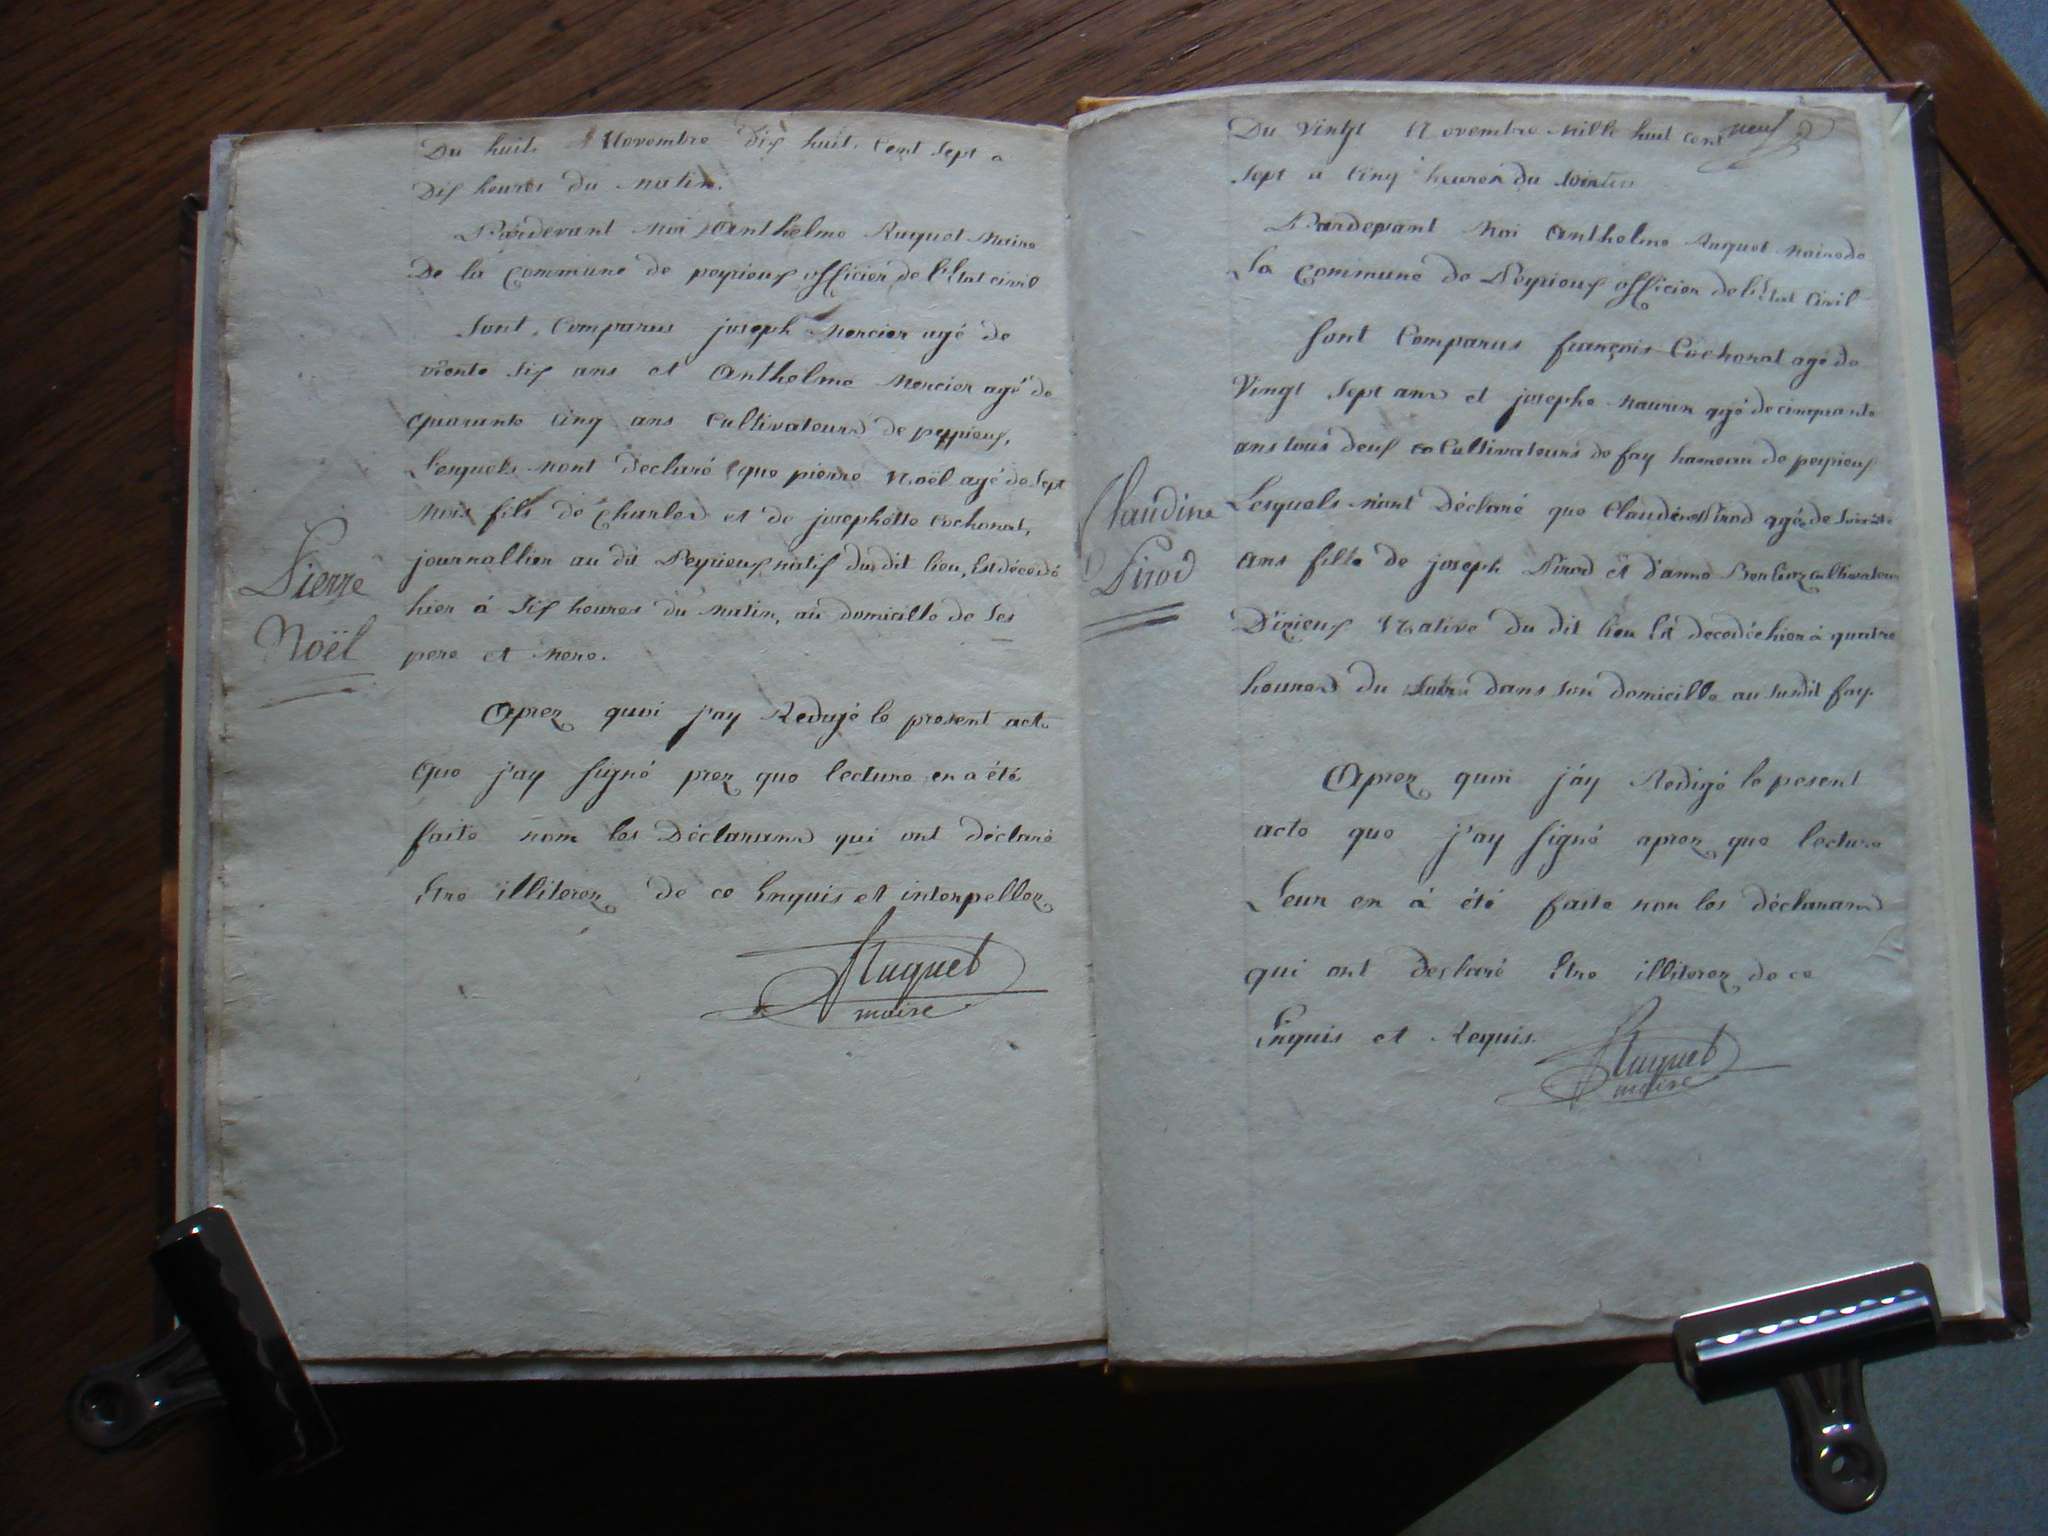 Du huit Novembre dix huit Cent Sept a
Dix heures du Matin.
Pardevant Moi Anthelme Ruquet Maire
De la Commune de peyrieux officier de l'Etat civil
Sont Comparus joseph Mercier agé de
trente Six ans et Anthelme Mercier agé de
quarante Cinq ans Cultivateurs de peyrieux,
Lesquels mont declaré que pierre Noël agé de Sept
Mois fils de Charles et de josephette Cochonat,
journallier au dit Peyrieux natif dudit lieu, Est décédé
hier à Six heures du Matin, au domicille de Ses
pere et Mere.
Pierre
Noël
Aprez quoi j'ay Redigé le present acte
Que j'ay Signé prez que lecture en a été
faite non les Déclarans qui ont déclaré
Etre illiterez de ce Enquis et interpellez
Ruquet
maire
neuf
Du Vingt Novembre Mille huit Cent
Sept a Cinq heures du
Pardevant Moi Anthelme Ruquet Maire de
La Commune de Peyrieux officier de l'Etat Civil
Sont Comparus françois Cochonat agé de
Vingt Sept ans et josephe Maurin agé de cinquante
ans tous deux Cultivateurs de fay hameau de peyrieux
Lesquels m'ont Déclaré que Claudine Pirod agée de
ans fille de joseph Pirod et d'anne cultivateur
D'izieux Native du dit lieu Est décedée hier à quatre
heures du dans son domicille au susdit fay.
Claudine
Pirod
Aprez quoi j'ay Redigé le pesent
acte que j'ay Signé aprez que lecture
Leur en à été faite non les déclarans
qui ont declaré Etre illiterez de ce
Enquis et Requis.
Ruquet
maire